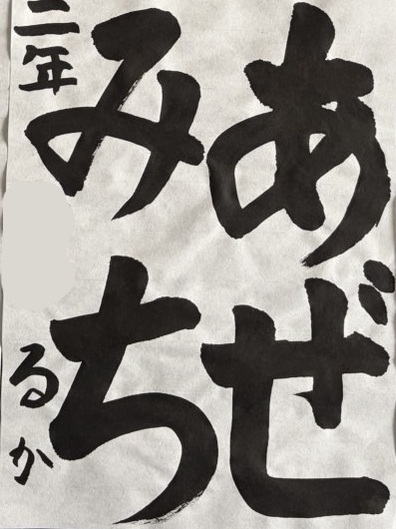 あぜ
みち
二年 るか